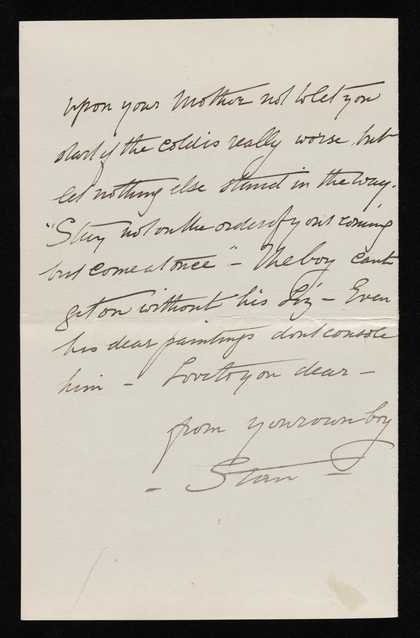 upon your Mother not to let you
start if the cold is really worse but
let nothing else stand in the way.
"Stay not on the order of your coming
but come at once" - The boy can't
get on without his Liz - Even
his dear paintings dont console
him - Love to you dear -
from your own boy
- Stan -